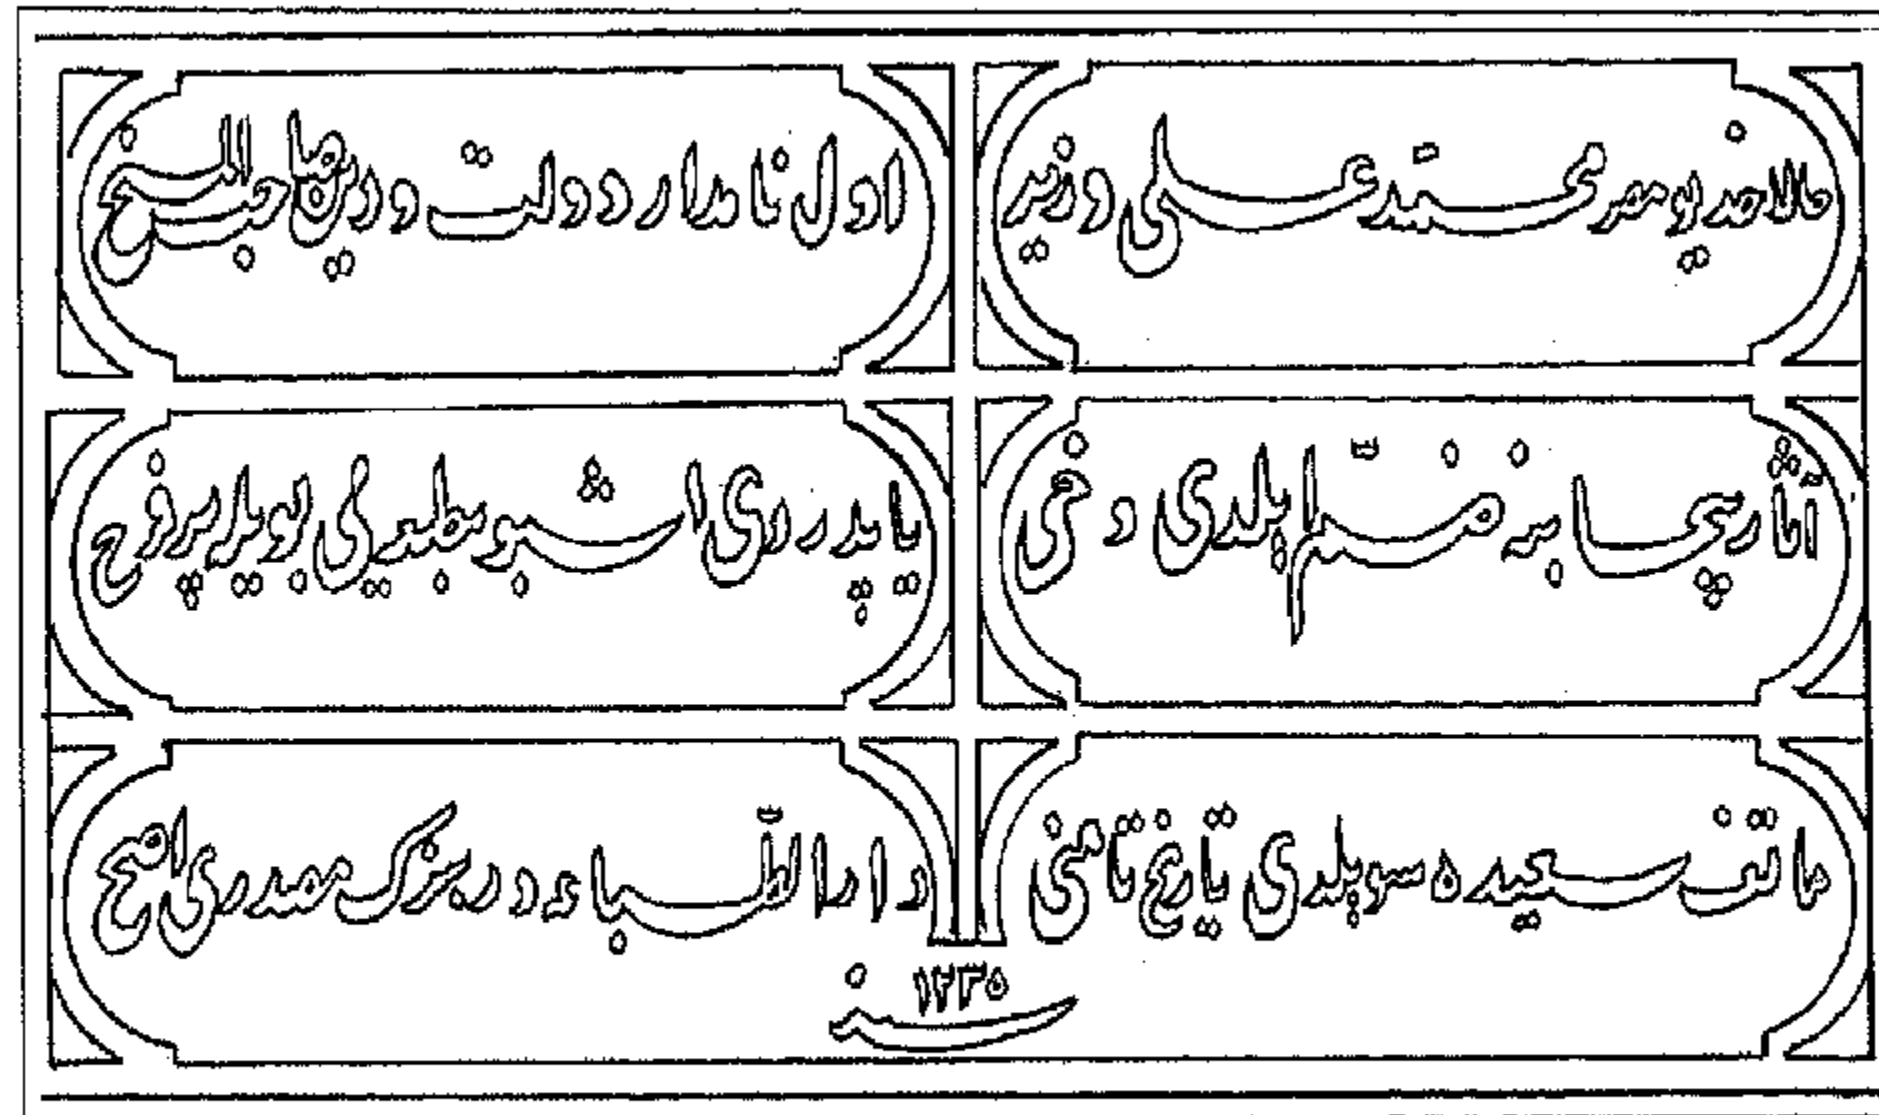 حالا خديو مصر محمد علی وزير
اول نامدار دولت ودين صاحب المنح
آثار بيحسابنه ضم ايلدی دخی
ياپدردی اشبو مطبعه يی بويله پرفرح
هاتف سعيده سويلدی تاريخ تامنی
دار الطباعه در هنرك مصدری اصح
سنه ١٢٣٥